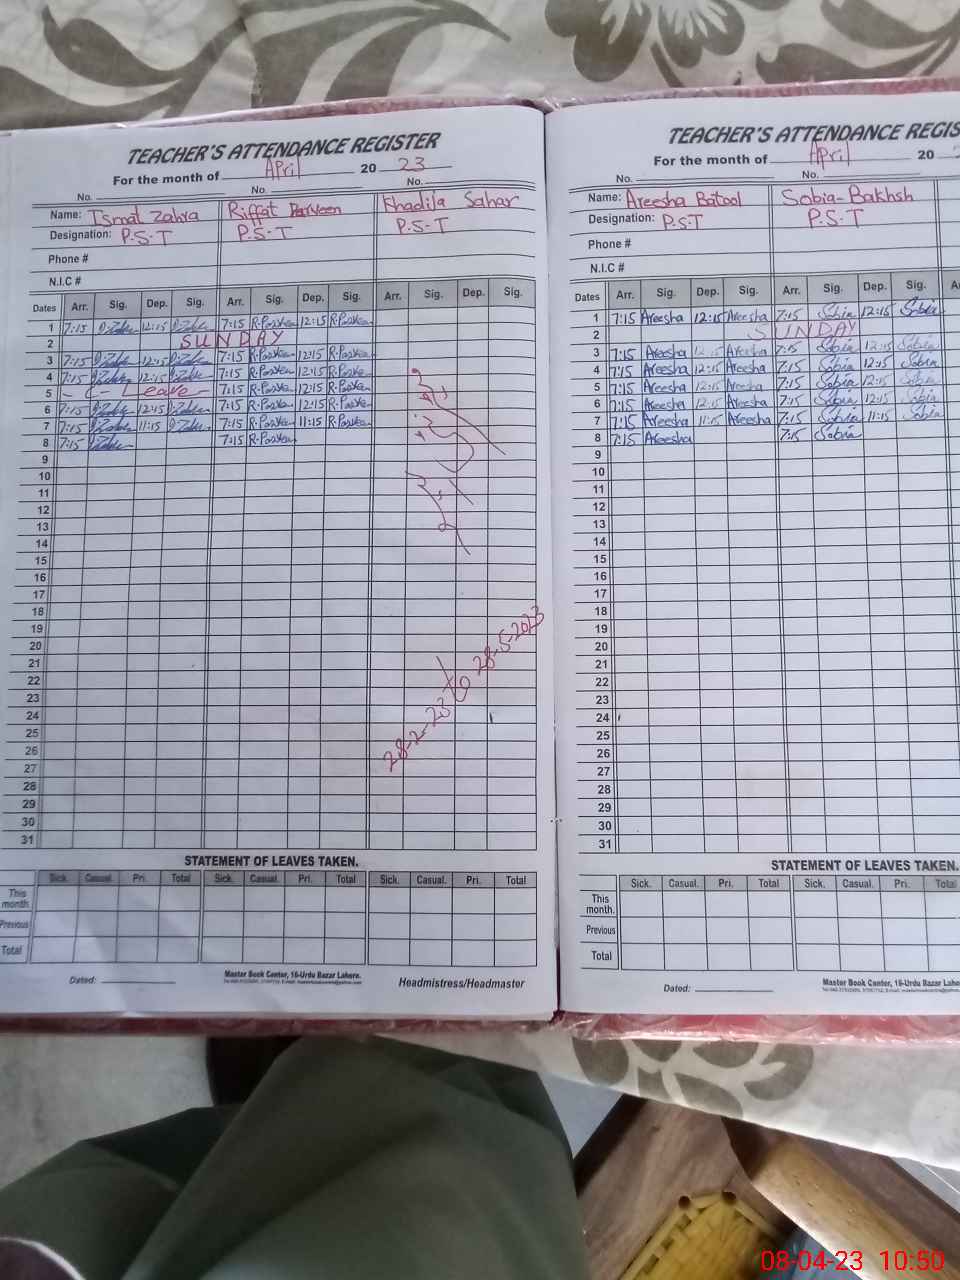 TEACHER'S ATTENDANCE REGISTER
For the month of April 20 23
No. No. No.
Name: Ismat Zahra Riffat Parveen Khadija Sahar
Designation: P.S.T P.S.T P.S.T
Phone #
N.I.C #
Dates Arr. Sig. Dep. Sig. Arr. Sig. Dep. Sig. Arr. Sig. Dep. Sig.
1 7:15 I Zahra 12:15 I Zahra 7:15 R.Parveen 12:15 R.Parveen
2 SUNDAY
3 7:15 I Zahra 12:15 I Zahra 7:15 R.Parveen 12:15 R.Parveen
4 7:15 I Zahra 12:15 I Zahra 7:15 R.Parveen 12:15 R.Parveen
5 - C - Leave - 7:15 R.Parveen 12:15 R.Parveen
6 7:15 I Zahra 12:15 I Zahra 7:15 R.Parveen 12:15 R.Parveen
7 7:15 I Zahra 11:15 I Zahra 7:15 R.Parveen 11:15 R.Parveen
8 7:15 I Zahra 7:15 R.Parveen
9
10
11
12
13
14
15
16
17
18
19
20
21
22
23
24
25
26
27
28
29
30
31
28-2-23 to 28-5-2023
STATEMENT OF LEAVES TAKEN.
Sick. Casual. Pri. Total Sick. Casual. Pri. Total Sick. Casual. Pri. Total
This month.
Previous
Total
Dated:
Master Book Center, 16-Urdu Bazar Lahore.
Headmistress/Headmaster
TEACHER'S ATTENDANCE REGIS
For the month of April 20
No. No.
Name: Areesha Batool Sobia-Bakhsh
Designation: P.S.T P.S.T
Phone #
N.I.C #
Dates Arr. Sig. Dep. Sig. Arr. Sig. Dep. Sig.
1 7:15 Areesha 12:15 Areesha 7:15 Sobia 12:15 Sobia
2 SUNDAY
3 7:15 Areesha 12:15 Areesha 7:15 Sobia 12:15 Sobia
4 7:15 Areesha 12:15 Areesha 7:15 Sobia 12:15 Sobia
5 7:15 Areesha 12:15 Areesha 7:15 Sobia 12:15 Sobia
6 7:15 Areesha 12:15 Areesha 7:15 Sobia 12:15 Sobia
7 7:15 Areesha 11:15 Areesha 7:15 Sobia 11:15 Sobia
8 7:15 Areesha 7:15 Sobia
9
10
11
12
13
14
15
16
17
18
19
20
21
22
23
24
25
26
27
28
29
30
31
STATEMENT OF LEAVES TAKEN.
Sick. Casual. Pri. Total Sick. Casual. Pri. Total
This month.
Previous
Total
Dated:
Master Book Center, 16-Urdu Bazar Laho
08-04-23 10:50